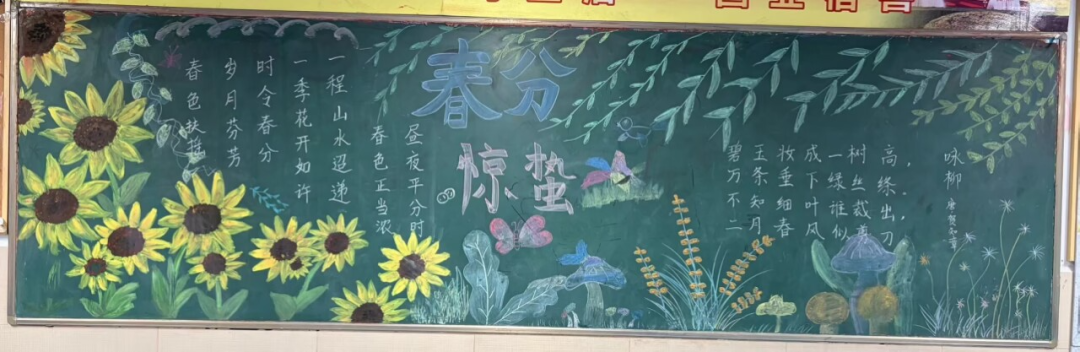 春分
惊蛰
昼夜平分时
春色正当浓
一程山水迢递
一季花开如许
时令春分
岁月芬芳
春色扶摇
咏柳 唐 贺知章
碧玉妆成一树高，
万条垂下绿丝绦。
不知细叶谁裁出，
二月春风似剪刀。